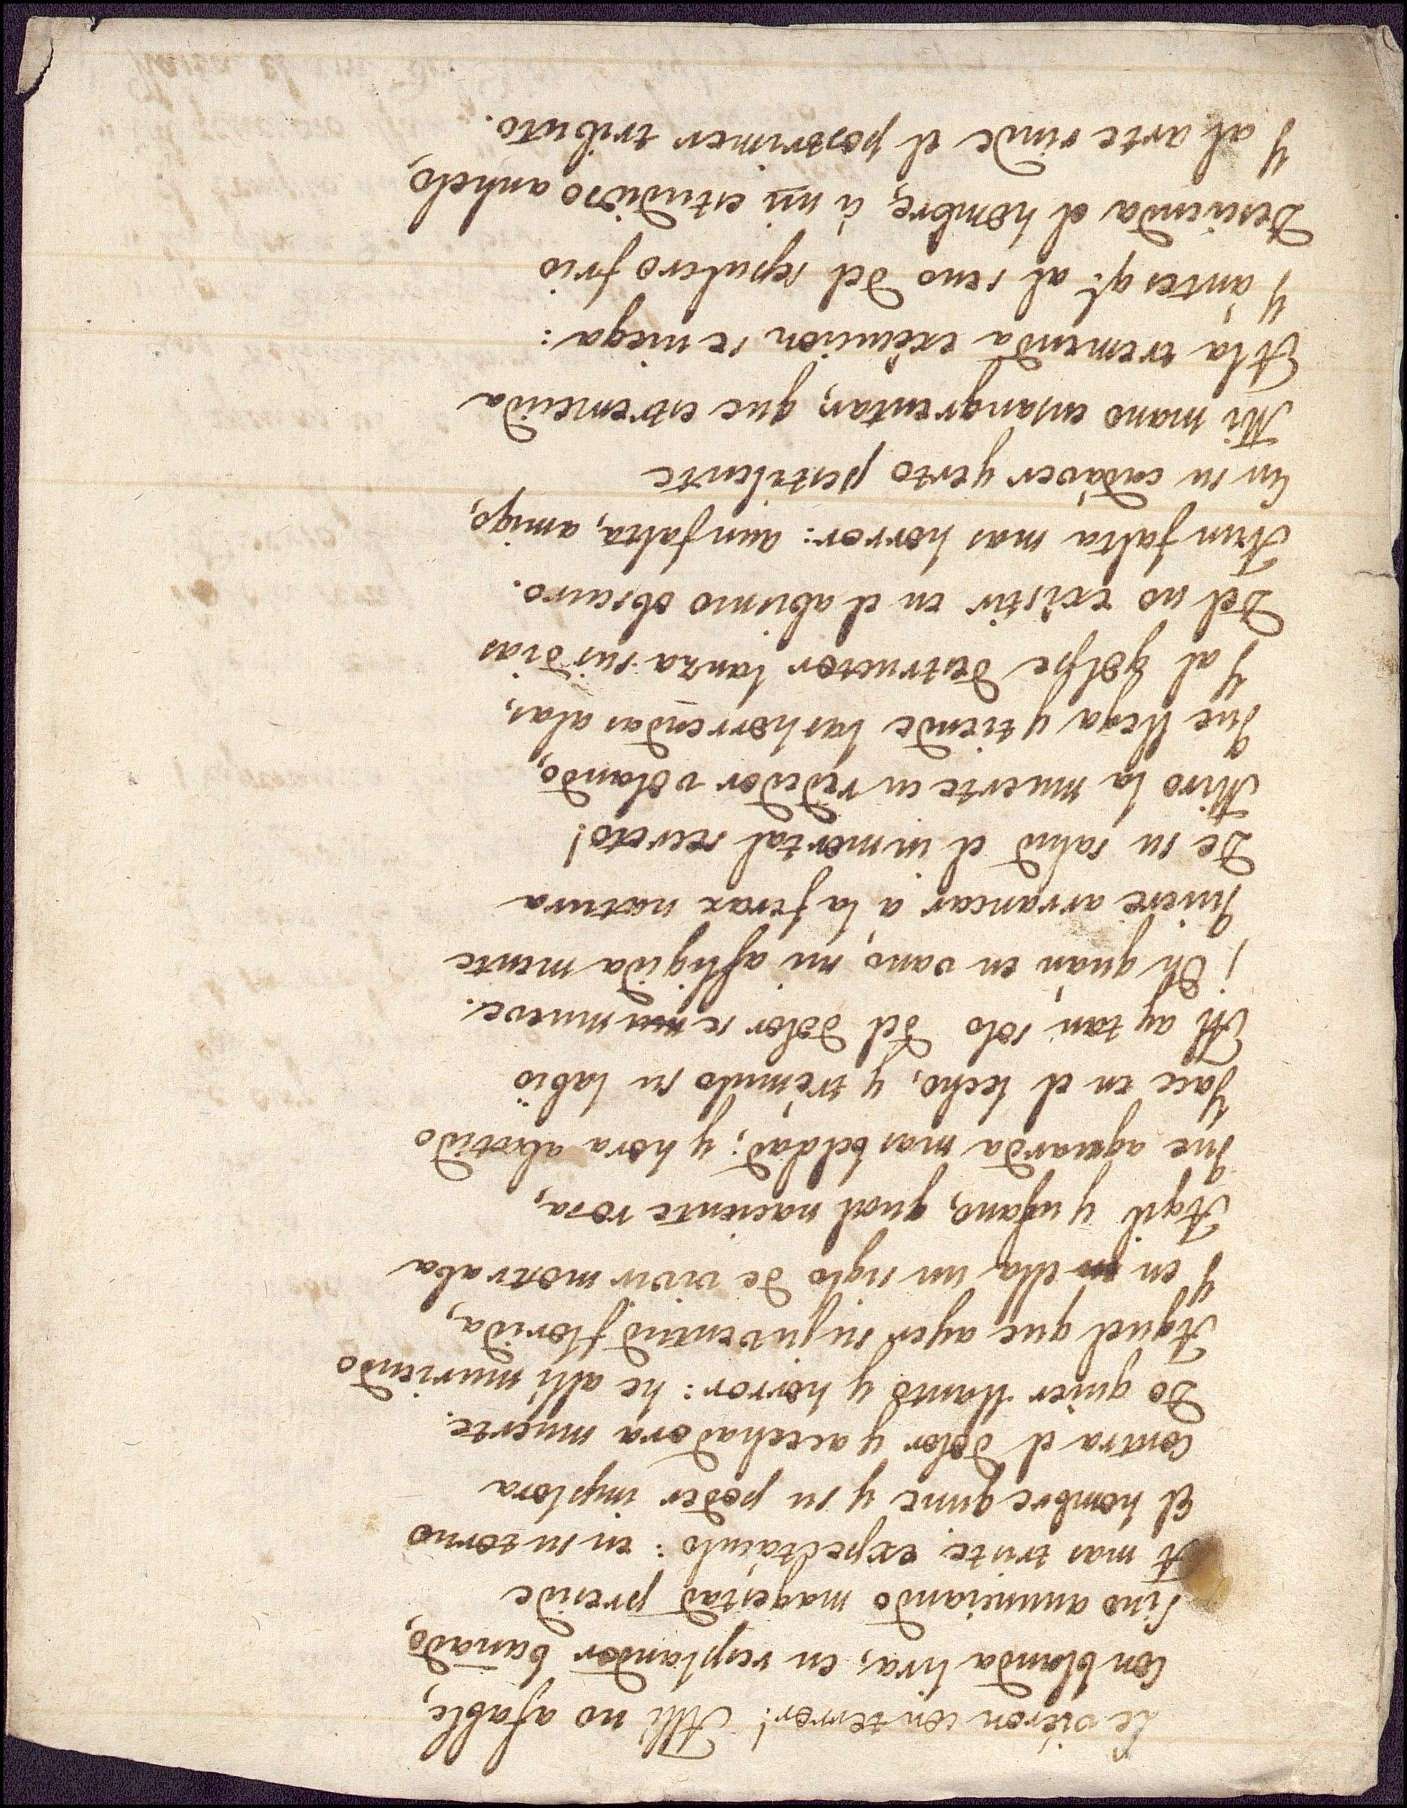 Le viéron con terror! Alli no afable,
Con blanda lira, en resplandor bañado,
Sino anunciando magestad preside
A mas triste expectáculo: en su torno
El hombre gime y su poder implora
Contra el dolor y acechadora muerte.
Do quier llanto y horror: he alli muriendo
Aquel que ayer su juventud florida,
Y en ella un siglo de vivir mostraba
Agil y ufano, qual naciente rosa,
Que aguarda mas beldad; y hora abatido
Yace en el lecho, y trémulo su labio
Al ay tan solo del dolor se mueve.
¡Oh quan en vano, mi afligida mente
Quiere arrancar à la feraz natura
De su salud el inmortal secreto!
Miro la muerte en rededor volando,
Que llega y tiende las horrendas alas,
Y al golpe destructor lanza sus dias
Del no existir en el abismo obscuro.
Aun falta mas horror: aun falta, amigo,
En su cadáver yerto pestilente
Mi mano ensangrentar, que estremecida
A la tremenda execucion se niega:
Y ántes q.e al seno del sepulcro frio
Descienda el hombre, à mi estudioso anhelo,
Y al arte rinde el postrimer tributo.